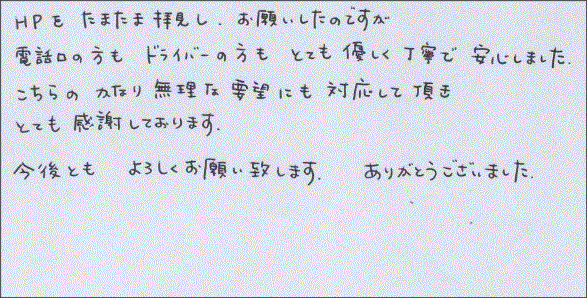 HPを たまたま 拝見し、お願いしたのですが
電話口の方も ドライバーの方も とても 優しく 丁寧で 安心しました。
こちらの かなり 無理な 要望にも 対応して 頂き
とても 感謝しております。
今後とも よろしくお願い致します。 ありがとうございました。